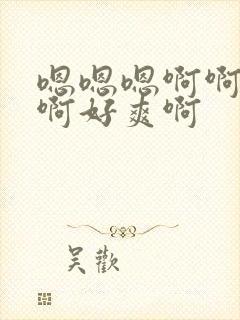 嗯嗯嗯啊啊
啊好爽啊
吴歡